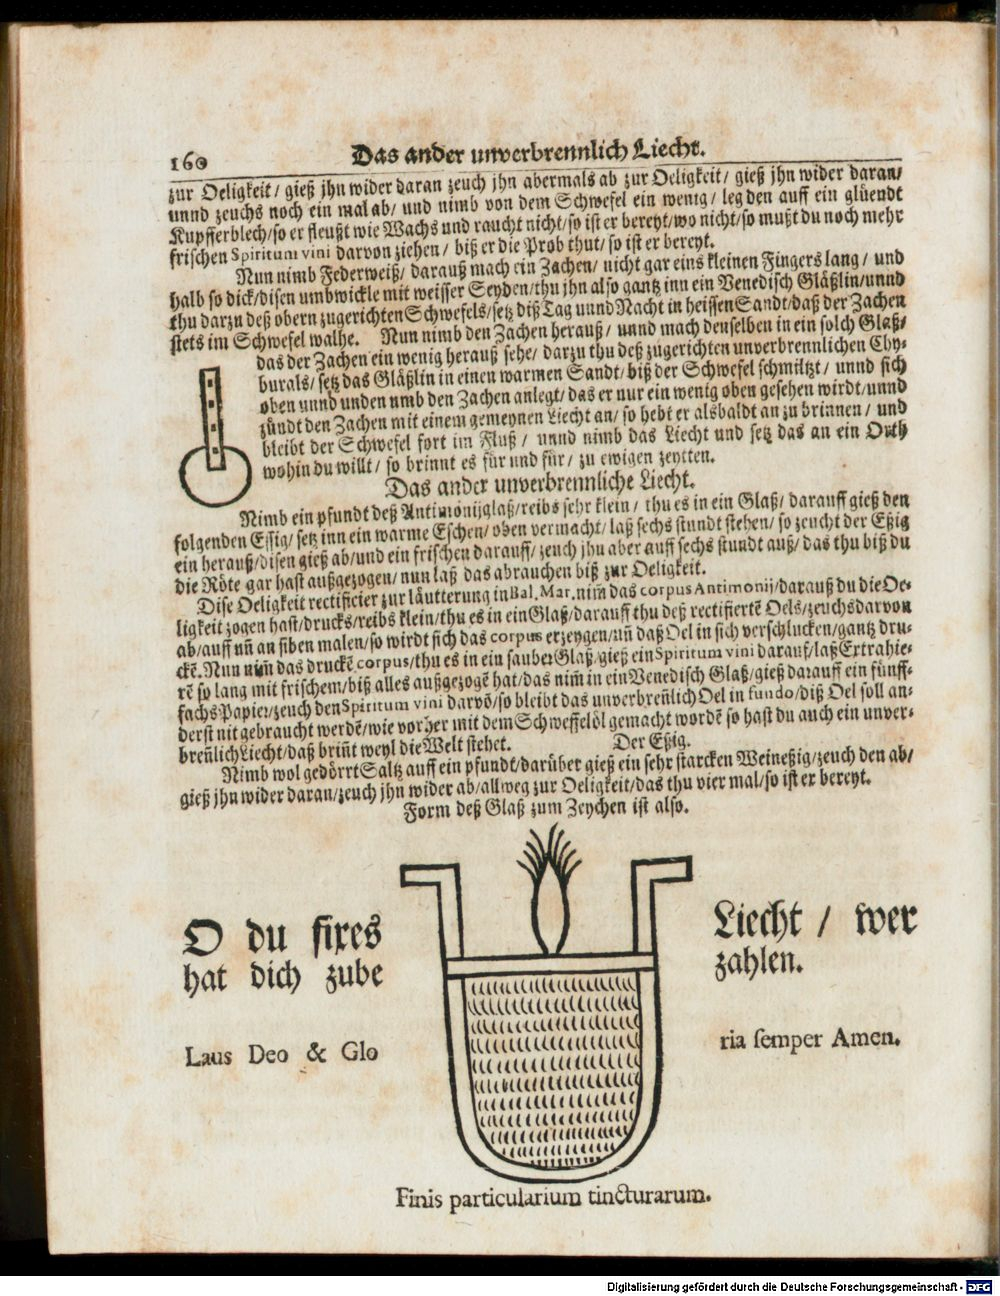 160 Das ander unverbrennlich Liecht.
zur Oeligkeit / gieß jhn wider daran zeuch jhn abermals ab zur Oeligkeit / gieß jhn wider daran/
unnd zeuchs noch ein mal ab / und nimb von dem Schwefel ein wenig / leg den auff ein glüendt
Kupfferblech / so er fleußt wie Wachs und raucht nicht / so ist er bereyt / wo nicht / so mußt du noch mehr
frischen Spiritum vini darvon ziehen / biß er die Prob thut / so ist er bereyt.
Nun nimb Federweiß / darauß mach ein Zachen / nicht gar eins kleinen Fingers lang / und
halb so dick / disen umbwickle mit weisser Seyden / thu jhn also gantz inn ein Venedisch Gläßlin / unnd
thu darzu deß obern zugerichten Schwefels / setz diß Tag unnd Nacht in heissen Sandt / daß der Zachen
stets im Schwefel walhe. Nun nimb den Zachen herauß / unnd mach denselben in ein solch Glaß/
das der Zachen ein wenig herauß sehe / darzu thu deß zugerichten unverbrennlichen Chy-
burals / setz das Gläßlin in einen warmen Sandt / biß der Schwefel schmiltzt / unnd sich
oben unnd unden umb den Zachen anlegt / das er nur ein wenig oben gesehen wirdt / unnd
zündt den Zachen mit einem gemeynen Liecht an / so hebt er alsbaldt an zu brinnen / und
bleibt der Schwefel fort im Fluß / unnd nimb das Liecht und setz das an ein Orth
wohin du willt / so brinnt es für und für / zu ewigen zeytten.
Das ander unverbrennliche Liecht.
Nimb ein pfundt deß Antimonijglaß / reibs sehr klein / thu es in ein Glaß / darauff gieß den
folgenden Essig / setz inn ein warme Eschen / oben vermacht / laß sechs stundt stehen / so zeucht der Eßig
ein herauß / disen gieß ab / und ein frischen darauff / zeuch jhn aber auff sechs stundt auß / das thu biß du
die Röte gar hast außgezogen / nun laß das abrauchen biß zur Oeligkeit.
Dise Oeligkeit rectificier zur läutterung in Bal. Mar. nim̃ das corpus Antimonij / darauß du die Oe-
ligkeit zogen hast / drucks / reibs klein / thu es in ein Glaß / darauff thu deß rectifiertẽ Oels / zeuchs darvon
ab / auff uñ an siben malen / so wirdt sich das corpus erzeygen / uñ daß Oel in sich verschlucken / gantz dru-
ckẽ. Nun nim̃ das druckẽ corpus / thu es in ein sauber Glaß / gieß ein Spiritum vini darauf / laß Extrahie-
rẽ so lang mit frischem / biß alles außgezogẽ hat / das nim̃ in ein Venedisch Glaß / gieß darauff ein fünff-
fachs Papier / zeuch den Spiritum vini darvõ / so bleibt das unverbreñlich Oel in fundo / diß Oel soll an-
derst nit gebraucht werdẽ / wie vorher mit dem Schweffelöl gemacht wordẽ so hast du auch ein unver-
breñlich Liecht / daß briñt weyl die Welt stehet. Der Eßig.
Nimb wol gedörrt Saltz auff ein pfundt / darüber gieß ein sehr starcken Weineßig / zeuch den ab/
gieß jhn wider daran / zeuch jhn wider ab / allweg zur Oeligkeit / das thu vier mal / so ist er bereyt.
Form deß Glaß zum Zeychen ist also.
O du fixes Liecht / wer
hat dich zube zahlen.
Laus Deo & Glo ria semper Amen.
Finis particularium tincturarum.
Digitalisierung gefördert durch die Deutsche Forschungsgemeinschaft - DFG